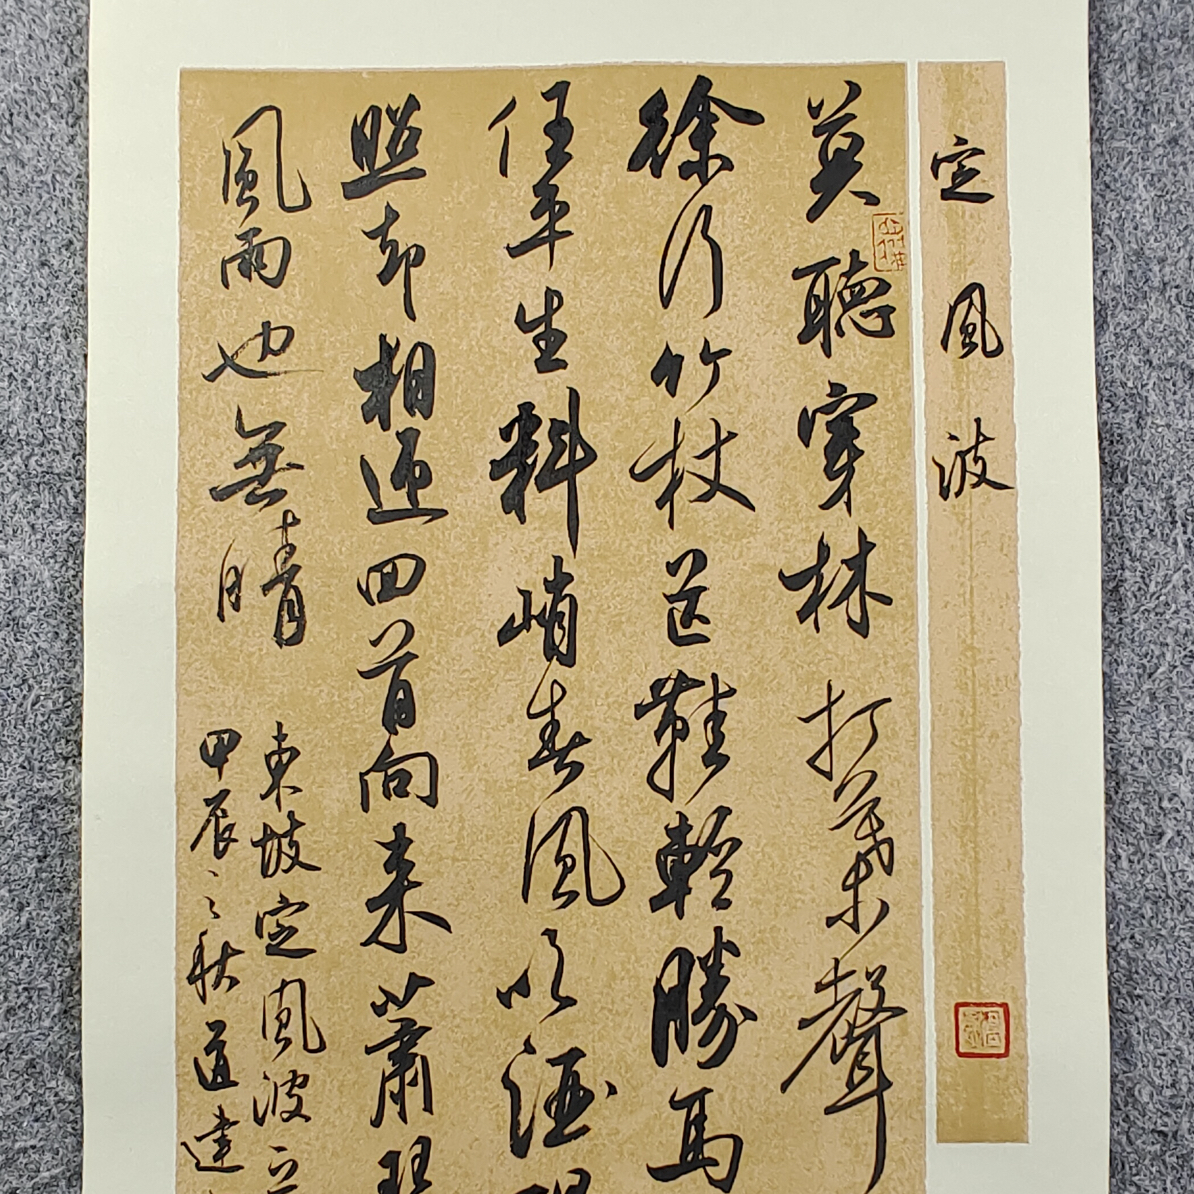 定風波
莫聴穿林打葉聲
徐行竹杖芒鞋輕勝馬
任平生料峭春風吹酒
照却相迎回首向来蕭
風雨也無晴
東坡定風波
甲辰之秋道達